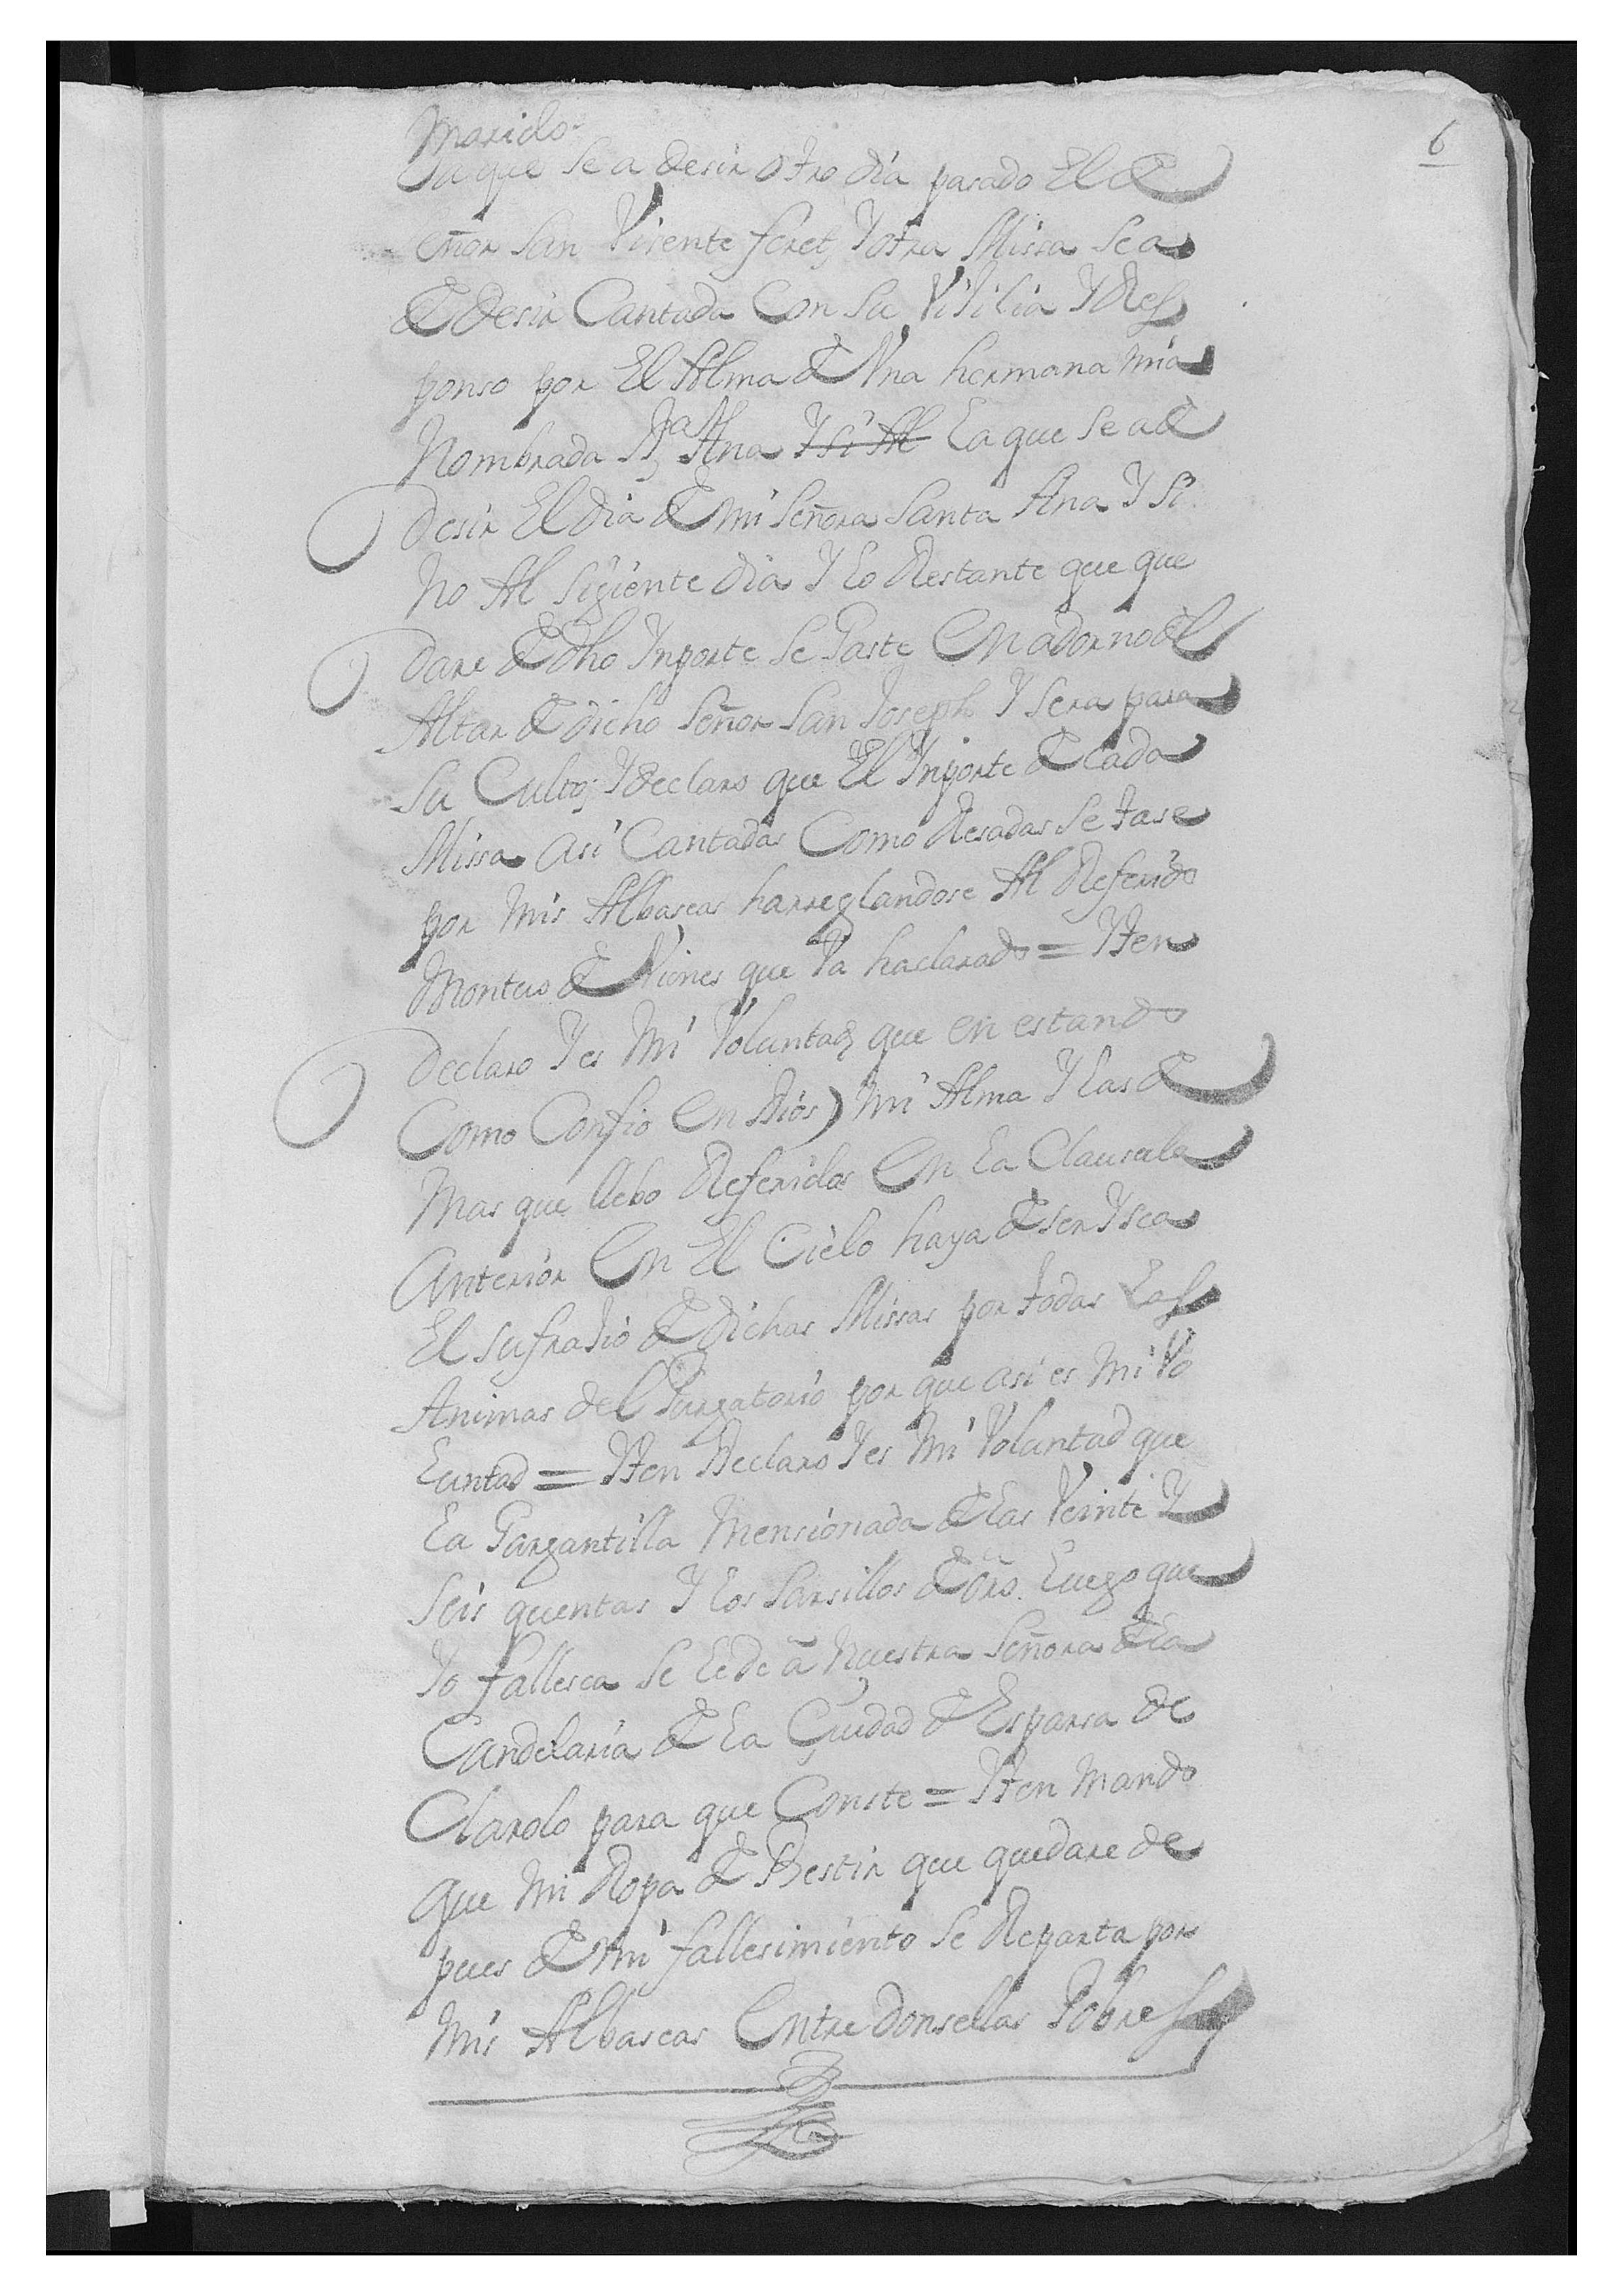 6
Marido
La que se a desir otro dia pasado El de
Señor San Visente feret, Y otra Missa se a
de desir Cantada Con su Vijilia Y Res
ponso por El Alma de Una hermana mia
Nombrada Da Ana Y si Al La que se a de
desir El dia de mi Señora Santa Ana Y si
no Al sigiente dia Y lo Restante que que
dare de dho Inporte se Gaste En adorno del
Altar de dicho Señor San Joseph Y sera para
Su Culto; Y declaro que El Inporte de cada
Missa asi Cantadas Como Resadas se tase
por mis Albaseas harreglandose Al Referido
Monteo de Vienes que Va haclarado = Yten
Declaro Y es Mi Voluntad que en estando
Como Confio En Dios) mi Alma Y las de
Mas que llebo Referidas En la Clausula
Anterior En El Cielo haya de ser Y sea
El sufrajio de dichas Missas por todas las
Animas del Purgatorio por que asi es mi Vo
luntad = Yten Declaro Y es Mi Voluntad que
La Gargantilla Mensionada de las Veinte Y
seis quentas Y los Sarsillos de oro Luego que
Yo fallesca se le de a Nuestra Señora de la
Candelaria de la Çiudad de Esparsa de
Clarolo para que Conste = Yten Mando
que mi Ropa de Bestir que quedare de
pues de mi fallesimiento se Reparta por
mis Albaseas Entre Donsellas Pobres